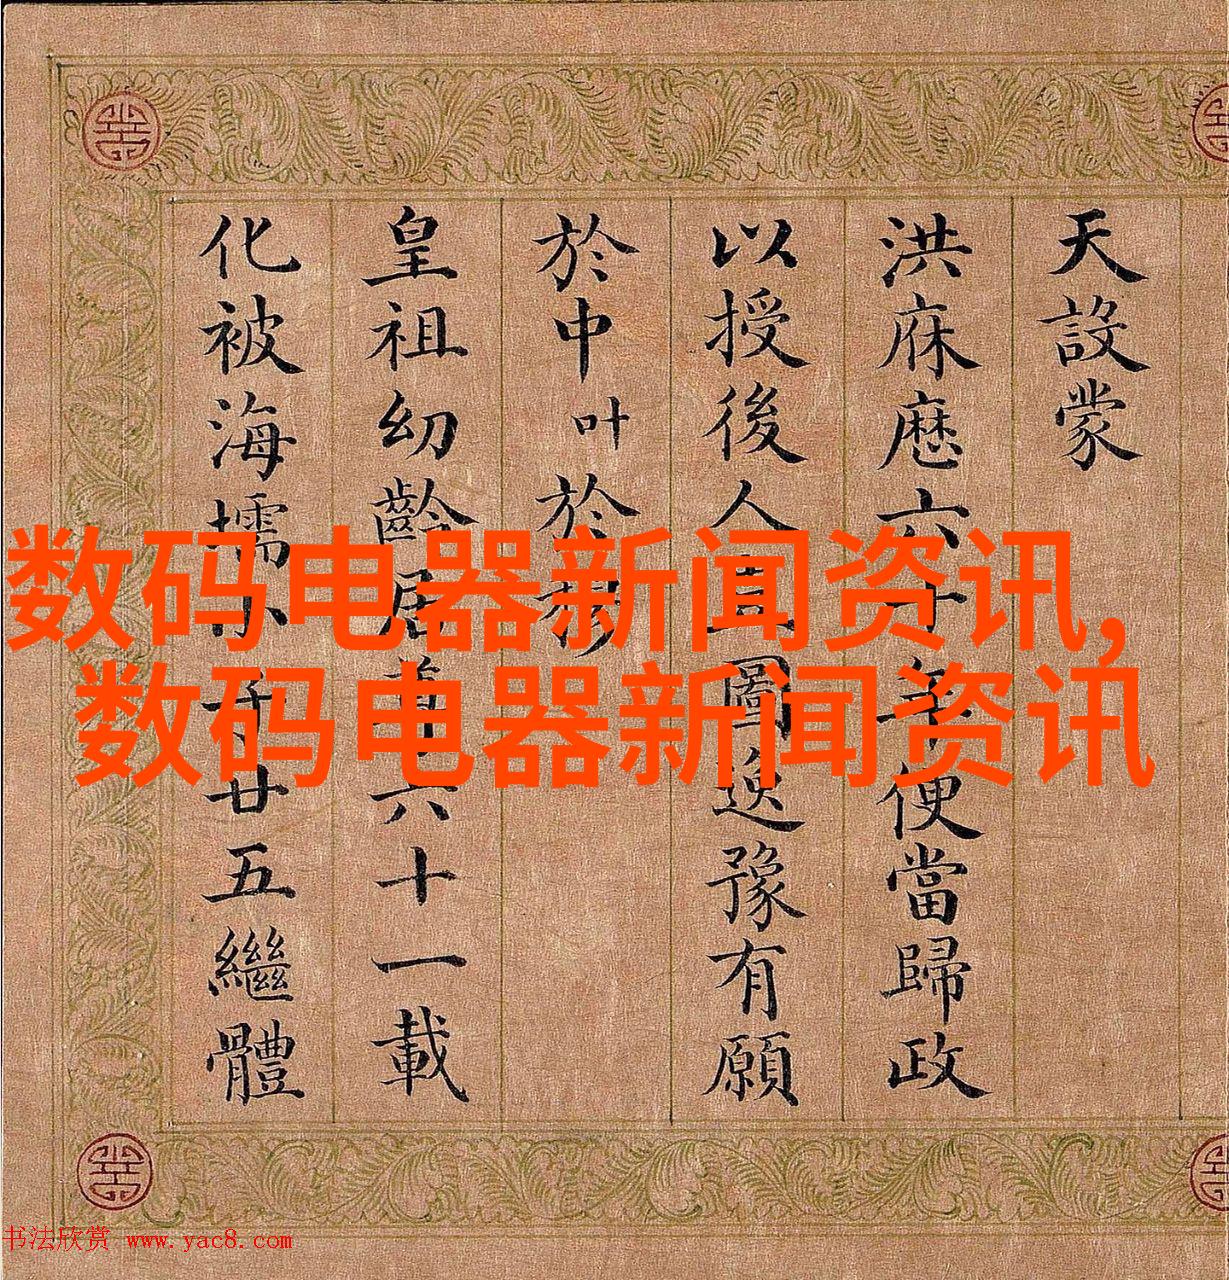 天設蒙
洪庥厯六十年便當歸政
以授後人且圖逸豫有願
於中叶於穆
皇祖幼齡居首六十一載
化被海壖小子廿五繼體
数码电器新闻资讯,
数码电器新闻资讯
书法欣赏 www.yac8.com